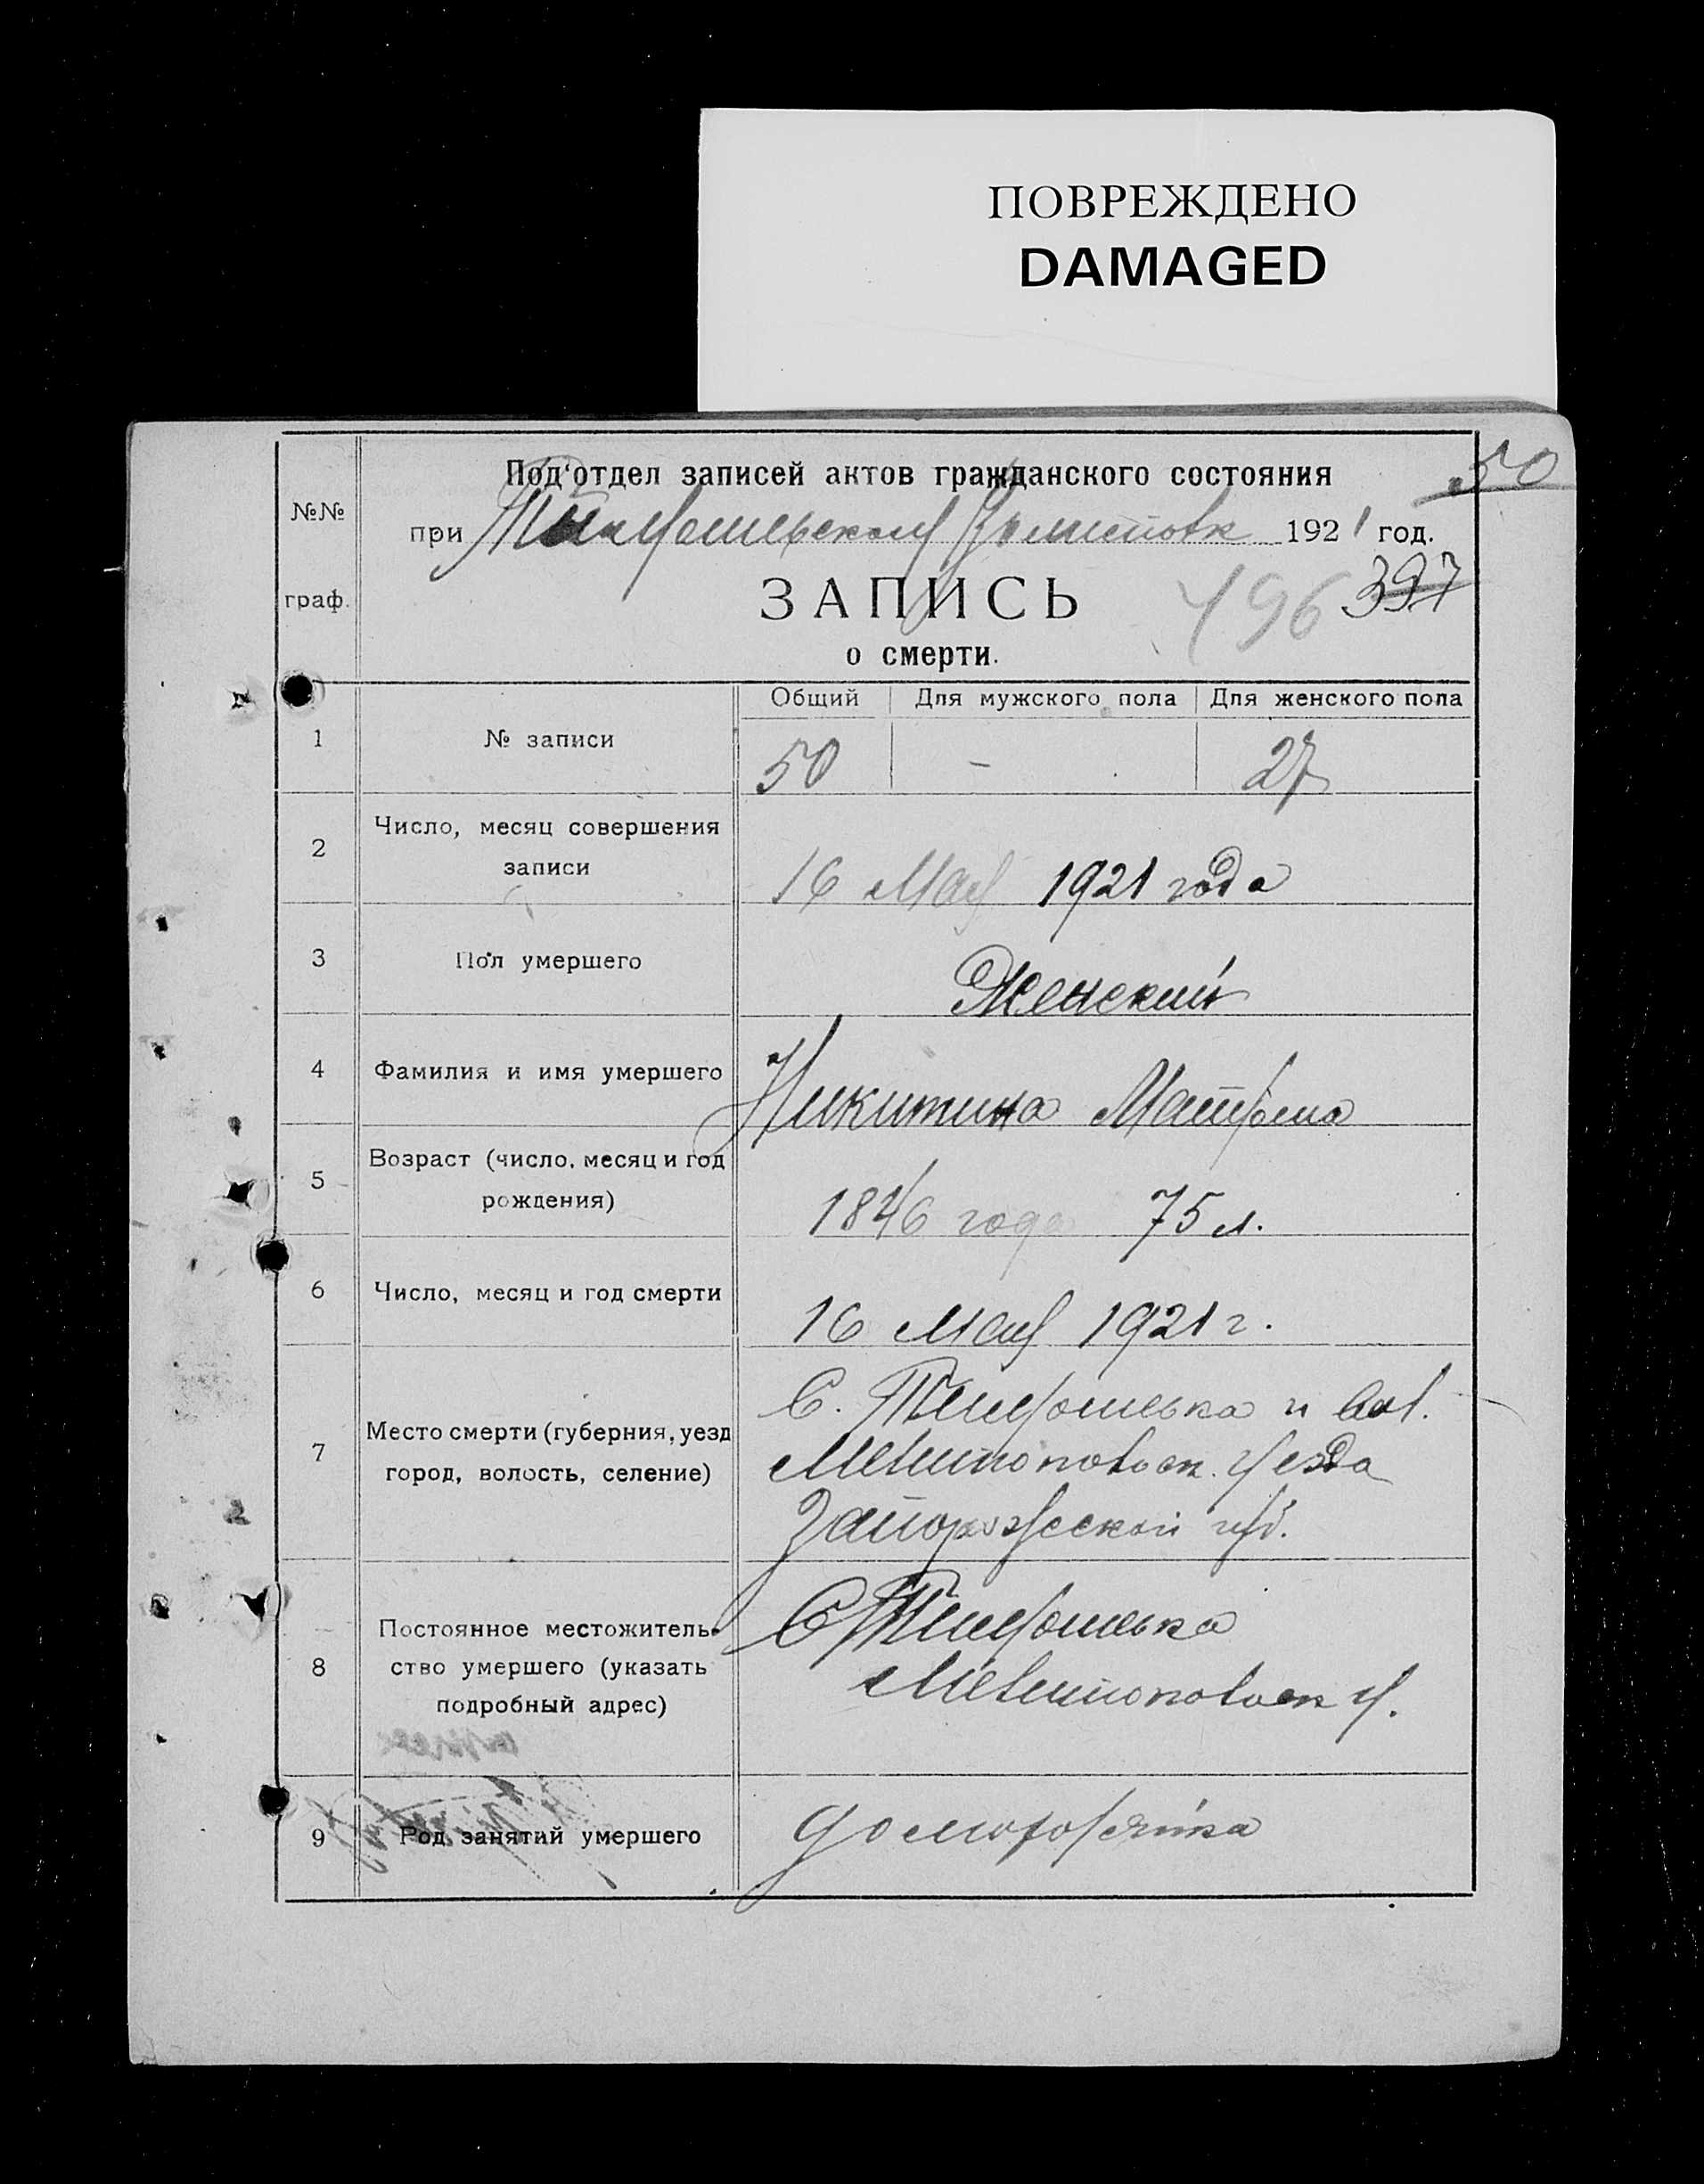 ПОВРЕЖДЕНО
DAMAGED
50
Под'отдел записей актов гражданского состояния
№№ при 1921 год.
граф. ЗАПИСЬ 496 397
о смерти.
Общий Для мужского пола Для женского пола
1 № записи 50 - 27
2 Число, месяц совершения
записи 16 Мая 1921 года
3 Пол умершего Женский
4 Фамилия и имя умершего Никитина Матрена
5 Возраст (число, месяц и год
рождения) 1846 года 75 л.
6 Число, месяц и год смерти 16 Мая 1921 г.
С. Тимошевка и вол.
7 Место смерти (губерния, уезд
город, волость, селение) Мелитопольск. Уезда
Запорожской губ.
Постоянное местожитель-
С. Тимошевка
8 ство умершего (указать
Мелитопольск У.
подробный адрес)
9 Род занятий умершего